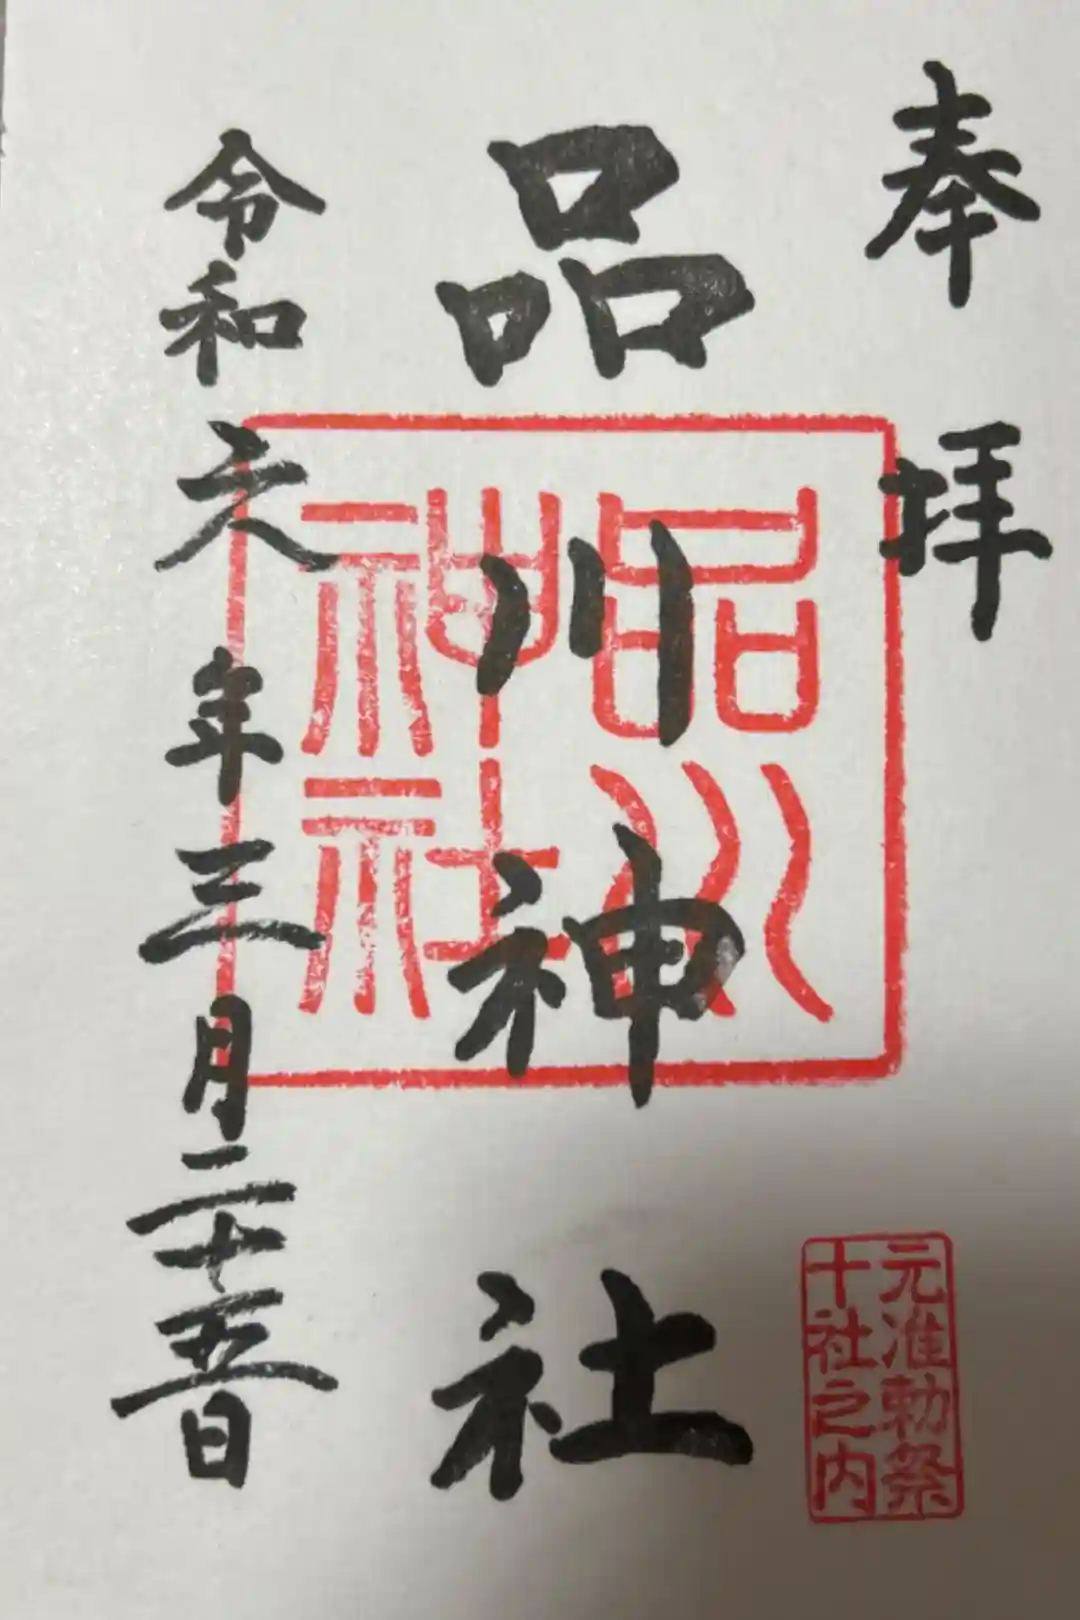 奉拝
品川神社
品川
神社
令和六年三月二十五日
元准勅祭
十社之内